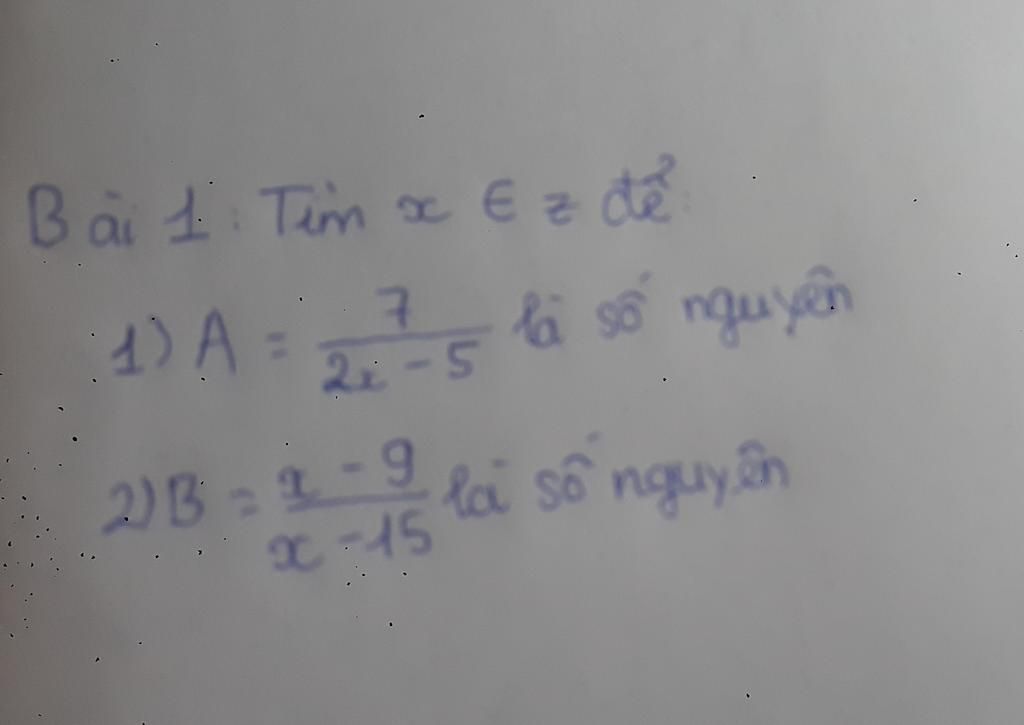 Bài 1: Tìm x ∈ z để:
1) A = 7/(2x - 5) là số nguyên
2) B = (x - 9)/(x - 15) là số nguyên